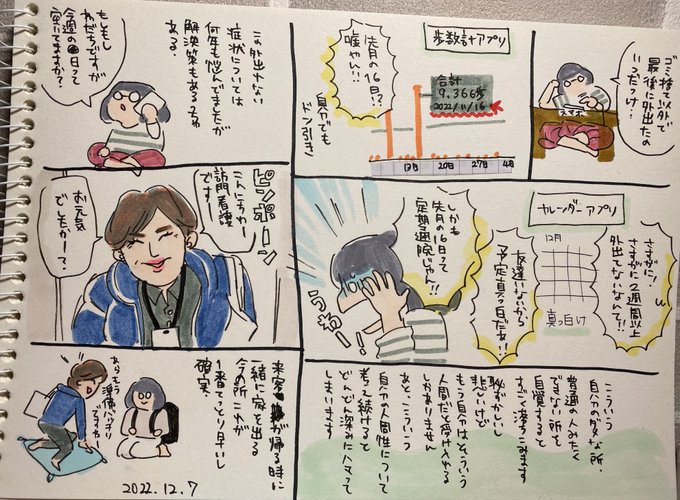 ゴミ捨て以外で
最後に外出たの
いつだっけ?
スマホ
歩数計アプリ
先月の16日!?
嘘やん!!
合計
9,366歩
2022/11/16
13日
20日
27日
4日
自分でも
ドン引き
カレンダーアプリ
さすがに!
さすがに2週間以上
外出てないなんて!!
12月
真っ白け
友達いないから
予定真っ白だぁ!!
しかも
先月の16日って
定期通院じゃん!!
うわー!
こういう
自分のダメな所・
普通の人みたく
できない所を
自覚すると
すごく凄くこみます
恥ずかしいし
悲しいけど
もう自分はそういう
人間だと受け入れる
しかありません
あと、こういう
自分の人間性について
考え続けると
どんどん深みにハマって
しまいます
この外出れない
症状については
何年も悩んでましたが
解決策もあるっちゃ
ある.
もしもし
わだちですが
今週の●日って
空いてますか?
ピンポーン
こんにちわー
訪問看護
です!
お元気
でしたかー?
来客が帰る時に
一緒に家を出る
今の所これが
1番てっとり早いし
確実.
あらもう
準備バッチリ
ですね!
2022.12.7